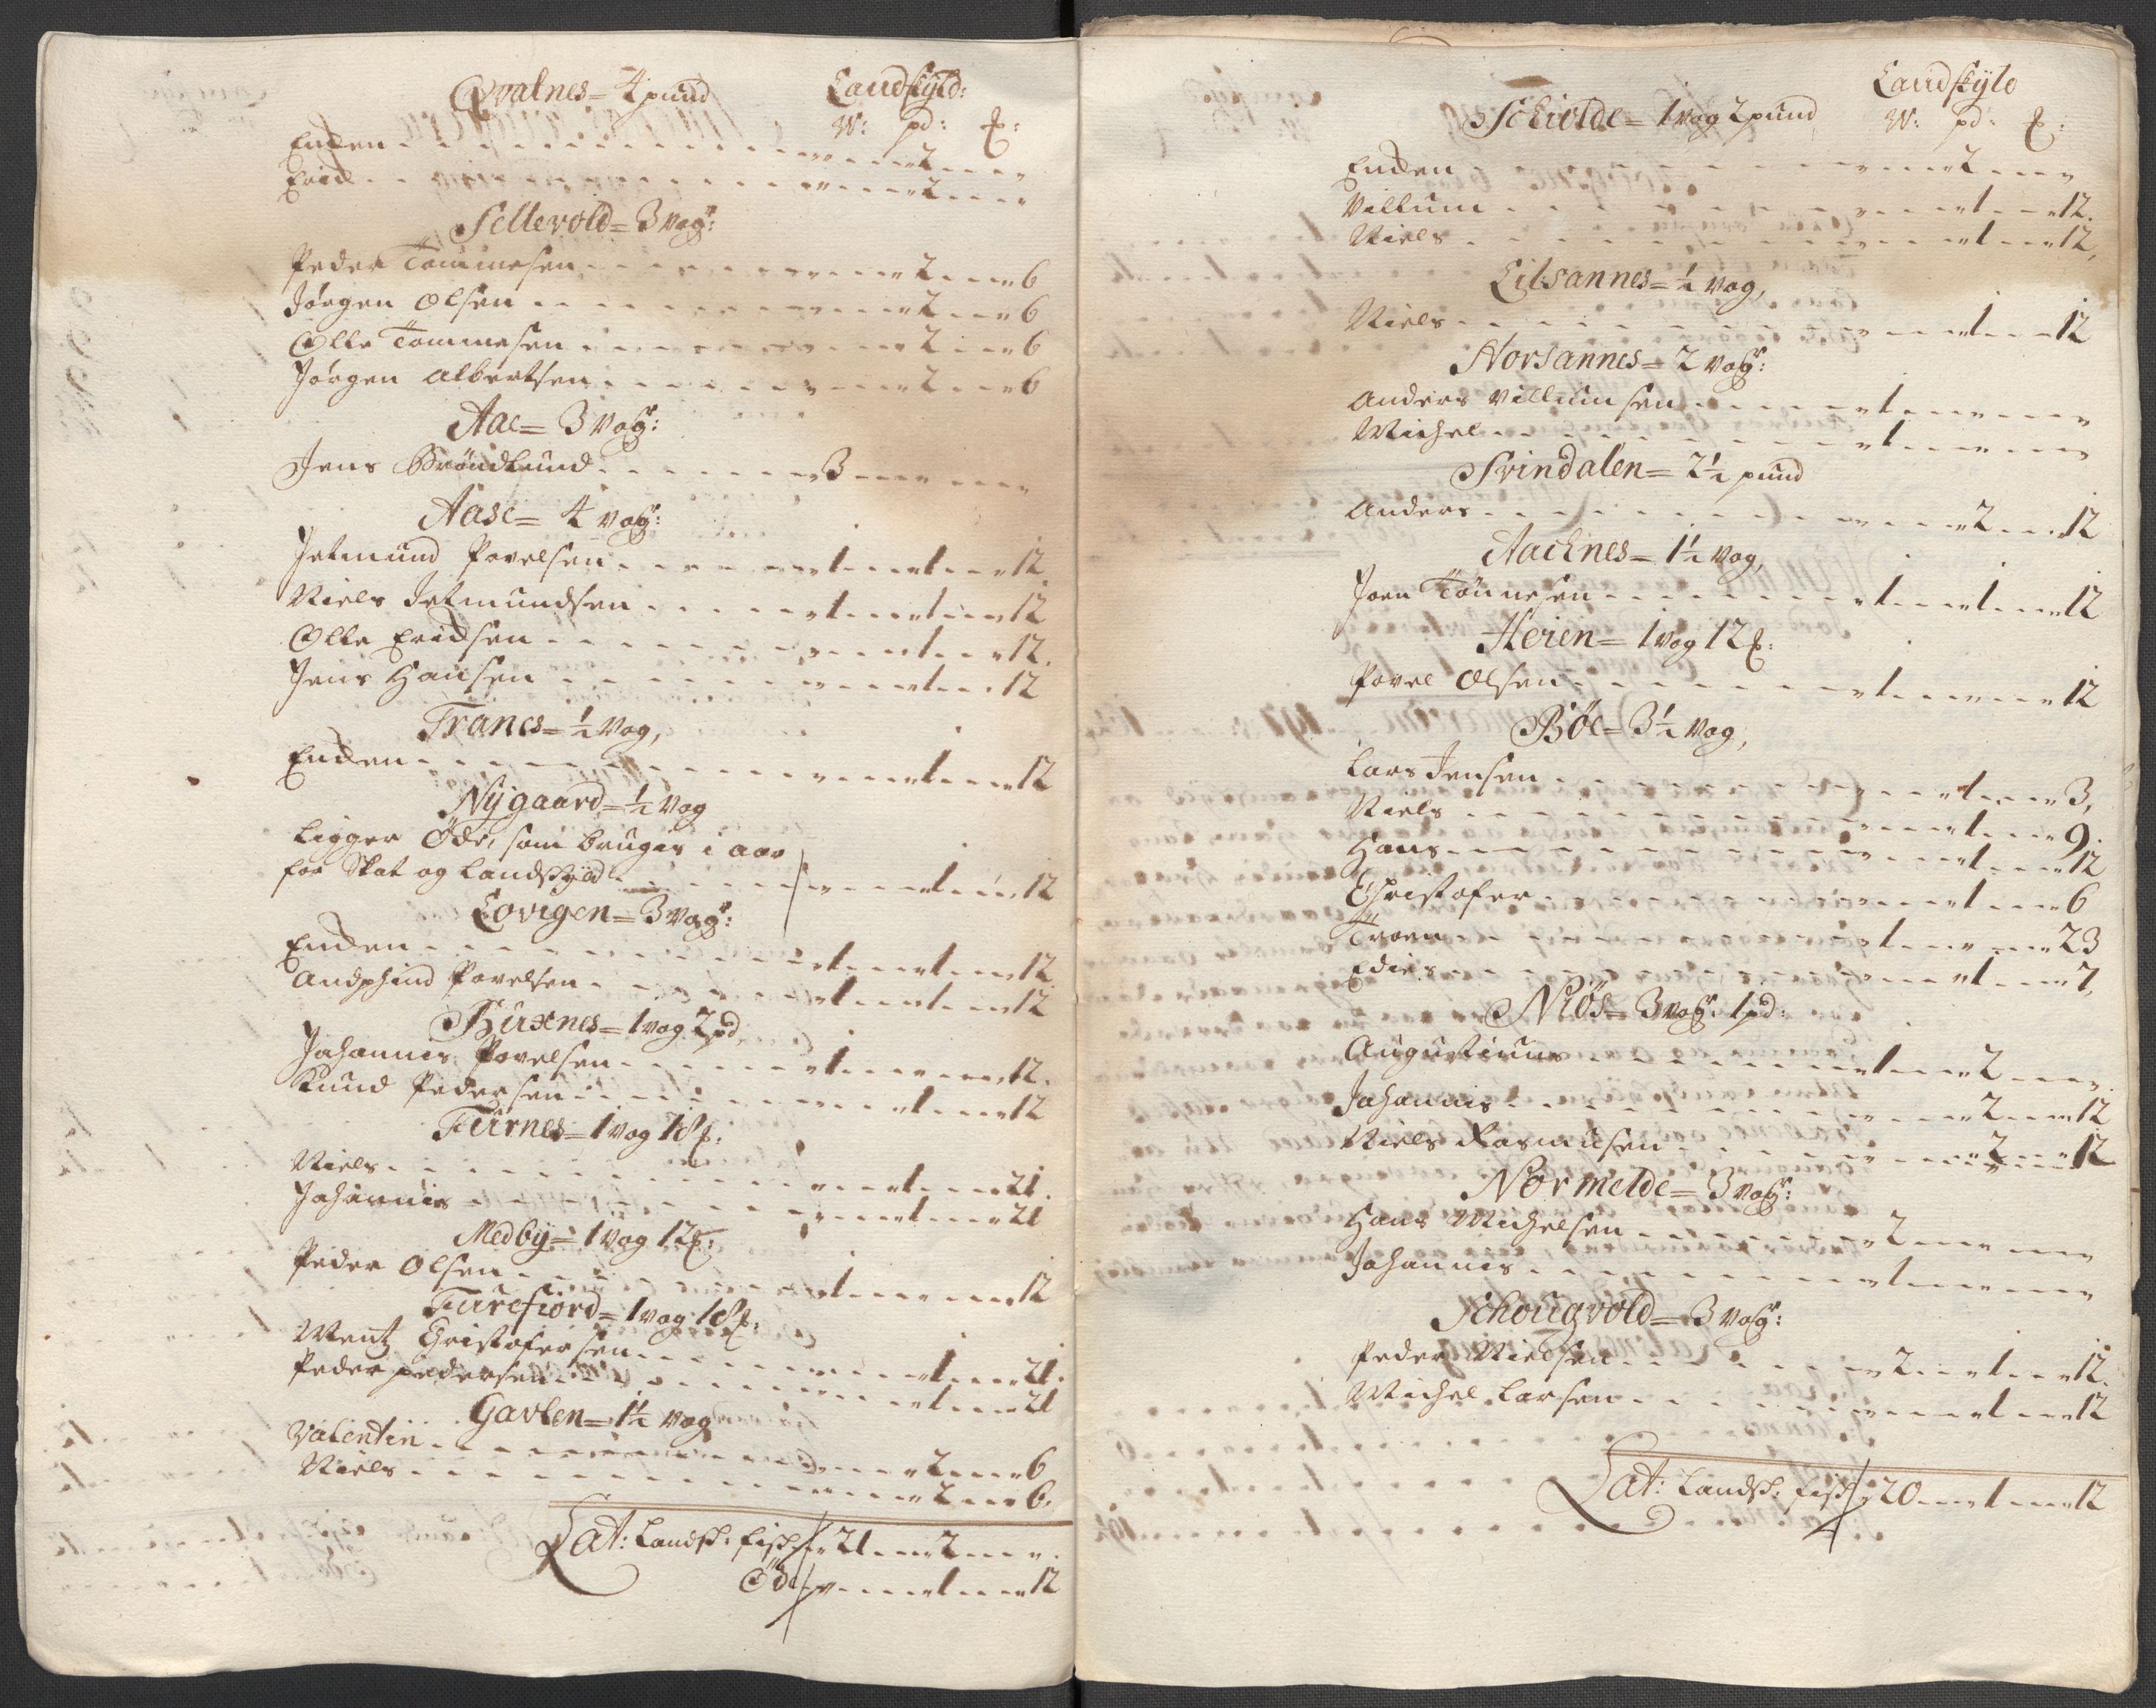 Qvalnes = 4 pund Landskyld:
W: pd: ℔:
Enken - - - „ - - „2 - - „
Erick - - - „ - - „2 - - „
Sellevold = 3 vog^r:
Peder Tommesen - - - „ - - „2 - - „6
Jörgen Olsen - - - „ - - „2 - - „6
Olle Tommesen - - - „ - - „2 - - „6
Jörgen Albertsen - - - „ - - „2 - - „6
Aae = 3 Vog^r:
Jens Bröndlund - - - „3 - - „ - - „
Aase = 4 vog^r:
Jetmund Povelsen - - - „1 - - „1 - - „12.
Niels Jetmundsen - - - „1 - - „1 - - „12
Olle Ericksen - - - „ - - „1 - - „12.
Jens Hansen - - - „ - - „1 - - „12
Tranes = ½ Vog,
Enken - - - „ - - „1 - - „12
Nÿgaard = ½ Vog
Ligger Öde, som bruges i aar
for Skat og Landskyld - - - „ - - „1 - - „12
Lovigen = 3 vog^r:
Enken - - - „1 - - „1 - - „12.
Andphind Povelsen - - - „1 - - „1 - - „12
Huxnes = 1 vog 2 pd
Johannes Povelsen - - - „1 - - „ - - „12.
Knud Pedersen - - - „ - - „1 - - „12
Furnes = 1 vog 18 ℔:
Niels - - - „ - - „1 - - „21.
Johannes - - - „ - - „1 - - „21
Medbÿ = 1 Vog 12 ℔:
Peder Olsen - - - „1 - - „ - - „12
Furefiord = 1 vog 18 ℔:
Mentz Christofersen - - - „ - - „1 - - „21.
Peder pedersen - - - „ - - „1 - - „21
Gavlen = 1½ vog
Valentin - - - „ - - „2 - - „6
Niels - - - „ - - „2 - - „6.
Lat: Landsk: fisk „21 - - „2 - - „.
Öde „ - - „1 - - „12
Landskyld
Schiolde = 1 vog 2 pund W: pd: ℔:
Enken - - - „ - - „2 - - „
Villum - - - „ - - „1 - - „12.
Niels - - - „ - - „1 - - „12,
Lilsannes = ½ vog,
Niels - - - „ - - „1 - - „12
Norsannes = 2 vog^r:
Anders Villumsen - - - „1 - - „ - - „
Michel - - - „1 - - „ - - „
Svindalen = 2½ pund
Anders - - - „ - - „2 - - „12
Aachnes = 1½ Vog,
Joen Tönnesen - - - „1 - - „1 - - „12
Heien = 1 vog 12 ℔:
Povel Olsen - - - „1 - - „ - - „12
Böe = 3½ Vog,
Lars Jensen - - - „ - - „1 - - „3,
Niels - - - „ - - „1 - - „9.
Hans - - - „ - - „1 - - „12
Christofer - - - „ - - „1 - - „6
Troen - - - „1 - - „ - - „23
Edies - - - „ - - „1 - - „7,
Niös = 3 vog^r: 1 pd:
Augustinus - - - „1 - - „2 - - „.
Johannes - - - „ - - „2 - - „12
Niels Rasmusen - - - „ - - „2 - - „12
Normelde = 3 vog^r:
Hans Michelsen - - - „2 - - „ - - „
Johannes - - - „1 - - „ - - „
Schougvold = 3 vog^r:
Peder Nielsen - - - „2 - - „1 - - „12.
Michel Larsen - - - „ - - „1 - - „12
Lat: Landsk: fisk „20 - - „1 - - „12